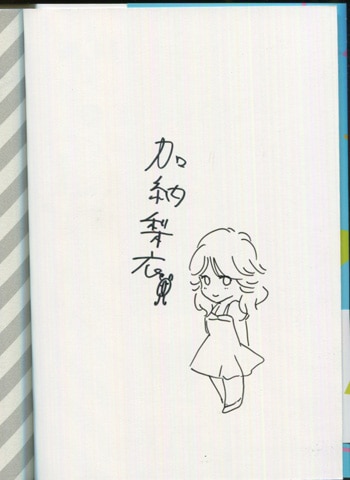 加納梨衣